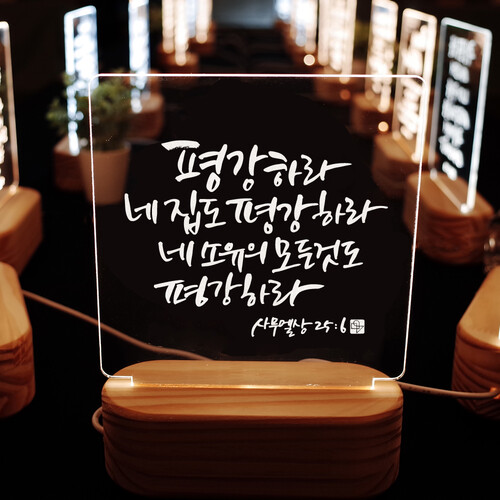 평강하라
네 집도 평강하라
네 소유의 모든것도
평강하라
사무엘상 25:6